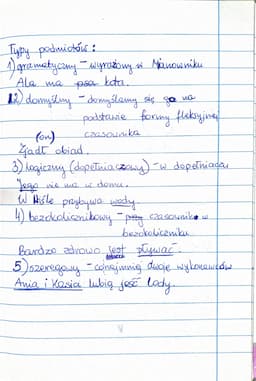 Typy podmiotów:
1) gramatyczny - wyrażony w Mianowniku
Ala ma psa kota.
2) domyślny - domyślamy się go na
podstawie formy fleksyjnej
(on) czasownika
Zjadł obiad.
3) logiczny (dopełniaczowy) - w dopełniaczu
Jego nie ma w domu.
W Wiśle przybywa wody.
4) bezokolicznikowy - przy czasowniku w
bezokoliczniku
Bardzo zdrowo jest pływać.
5) szeregowy - conajmniej dwóje wykonawców
Ania i Kasia lubią jeść lody.